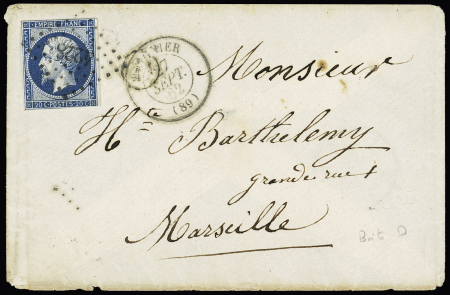 EMPIRE FRANC.
20 C. POSTES 20 C.
17
SEPT.
(89)
Monsieur
Hte Barthelemy
grande rue
Marseille
Boite D